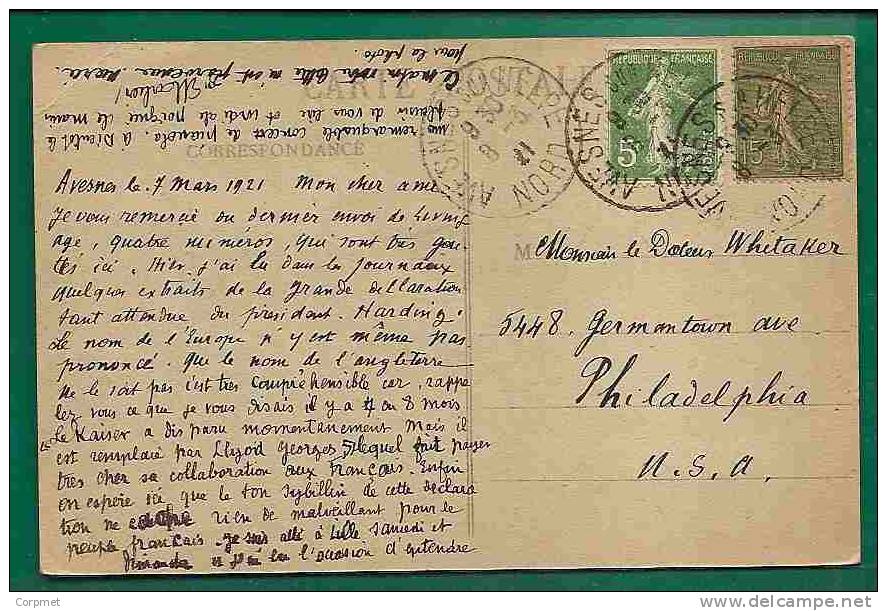 CARTE POSTALE
CORRESPONDANCE
Avesnes le 7 Mars 1921 Mon cher ami
Je vous remercie du dernier envoi de Living
age, quatre numeros, qui sont très gou-
tés ici. Hier j'ai lu dans les journaux
quelques extraits de la grande declaration
tant attendue du president Harding.
Le nom de l'Europe n'y est même pas
prononcé. Que le nom de l'angleterre
ne le soit pas c'est tres compréhensible car, rappe
lez vous ce que je vous disais il y a 7 ou 8 mois
"Le Kaiser a disparu momentanement mais il
est remplacé par Llyod Georges" lequel fait payer
tres cher sa collaboration aux français. Enfin
on espère ici que le ton sybillin de cette declara
tion ne cache rien de malveillant pour le
peuple français. Je suis allé à Lille samedi et
dimanche et j'ai eu l'occasion d'entendre
un remarquable concert de pianola. A bientôt le
plaisir de vous lire et cordiale poignée de main
Ce matin votre lettre m'est parvenue. Merci
pour la photo.
Monsieur le Docteur Whitaker
5448. Germantown ave
Philadelphia
U.S.A.
REPUBLIQUE FRANÇAISE
5
REPUBLIQUE FRANÇAISE
15
AVESNES
NORD
9 30
8
21
AVESNES
AVESNES
Corpmet
© www.delcampe.net